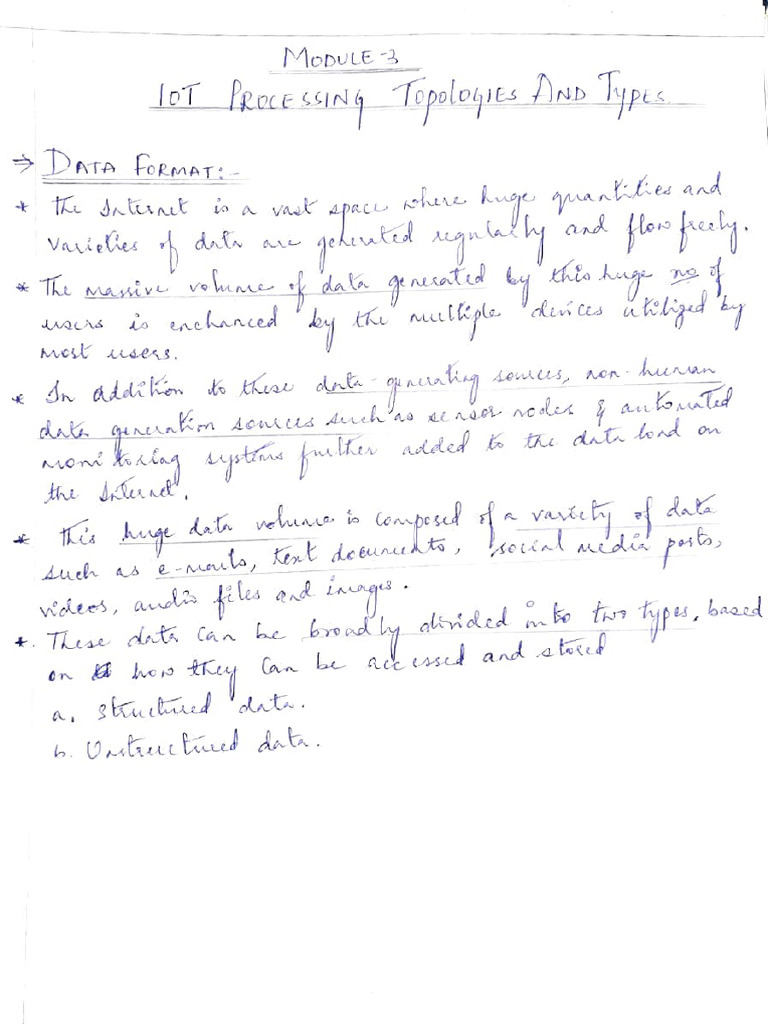 MODULE-3
IOT PROCESSING TOPOLOGIES AND TYPES
⇒ DATA FORMAT:-
* The Internet is a vast space where huge quantities and
varieties of data are generated regularly and flow freely.
* The massive volume of data generated by this huge no of
users is enchanced by the multiple devices utilized by
most users.
* In addition to these data-generating sources, non-human
data generation sources such as sensor nodes & automated
monitoring systems further added to the data load on
the Internet.
* This huge data volume is composed of a variety of data
such as e-mails, text documents, social media posts,
videos, audio files and images.
*. These data can be broadly divided into two types, based
on how they can be accessed and stored
a. Structured data.
b. Unstructured data.